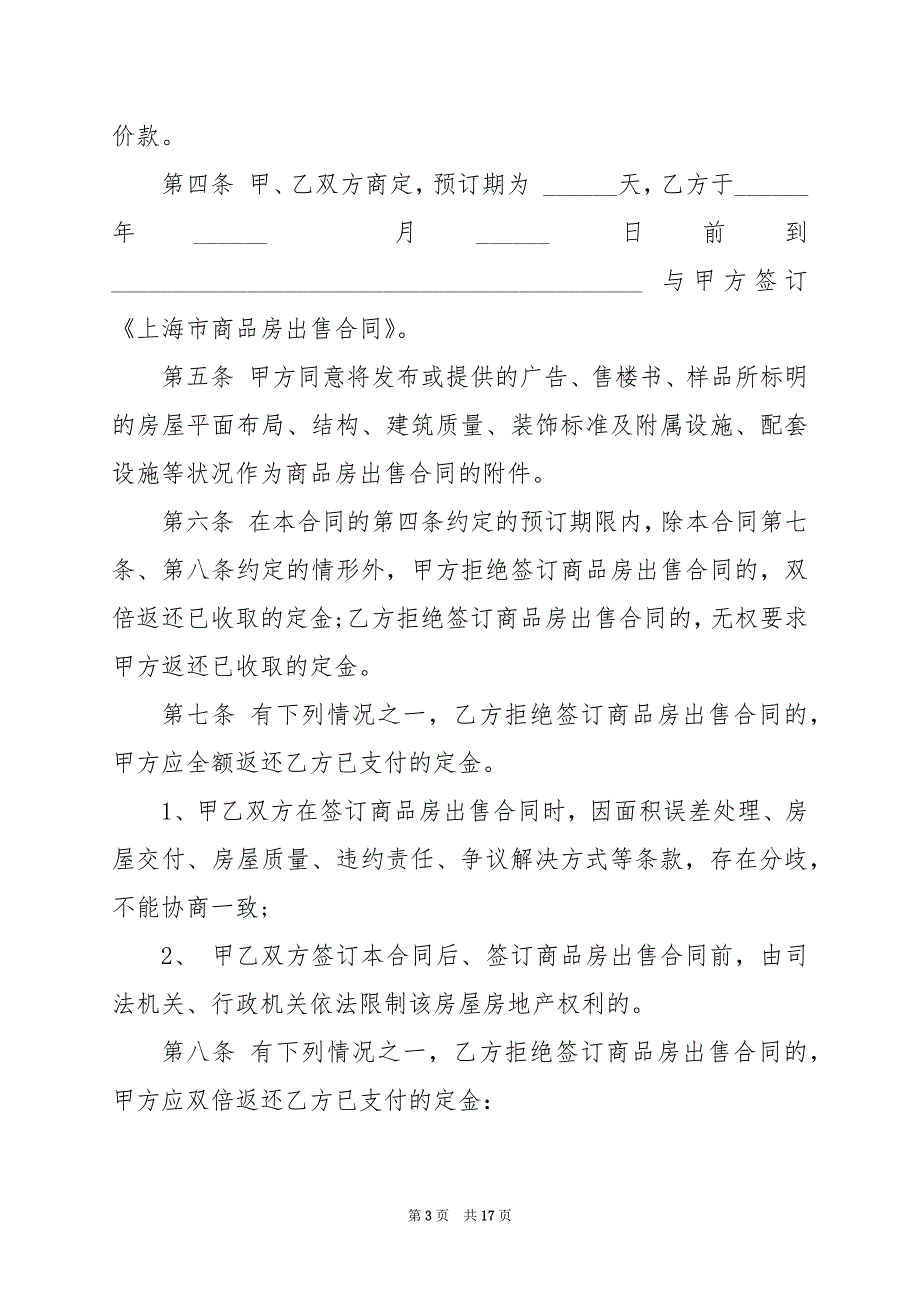 价款。
第四条 甲、乙双方商定，预订期为 ______天，乙方于______
年 ______ 月 ______ 日前到
___________________________________________ 与甲方签订
《上海市商品房出售合同》。
第五条 甲方同意将发布或提供的广告、售楼书、样品所标明
的房屋平面布局、结构、建筑质量、装饰标准及附属设施、配套
设施等状况作为商品房出售合同的附件。
第六条 在本合同的第四条约定的预订期限内，除本合同第七
条、第八条约定的情形外，甲方拒绝签订商品房出售合同的，双
倍返还已收取的定金;乙方拒绝签订商品房出售合同的，无权要求
甲方返还已收取的定金。
第七条 有下列情况之一，乙方拒绝签订商品房出售合同的，
甲方应全额返还乙方已支付的定金。
1、甲乙双方在签订商品房出售合同时，因面积误差处理、房
屋交付、房屋质量、违约责任、争议解决方式等条款，存在分歧，
不能协商一致;
2、 甲乙双方签订本合同后、签订商品房出售合同前，由司
法机关、行政机关依法限制该房屋房地产权利的。
第八条 有下列情况之一，乙方拒绝签订商品房出售合同的，
甲方应双倍返还乙方已支付的定金：
第 3 页 共 17 页